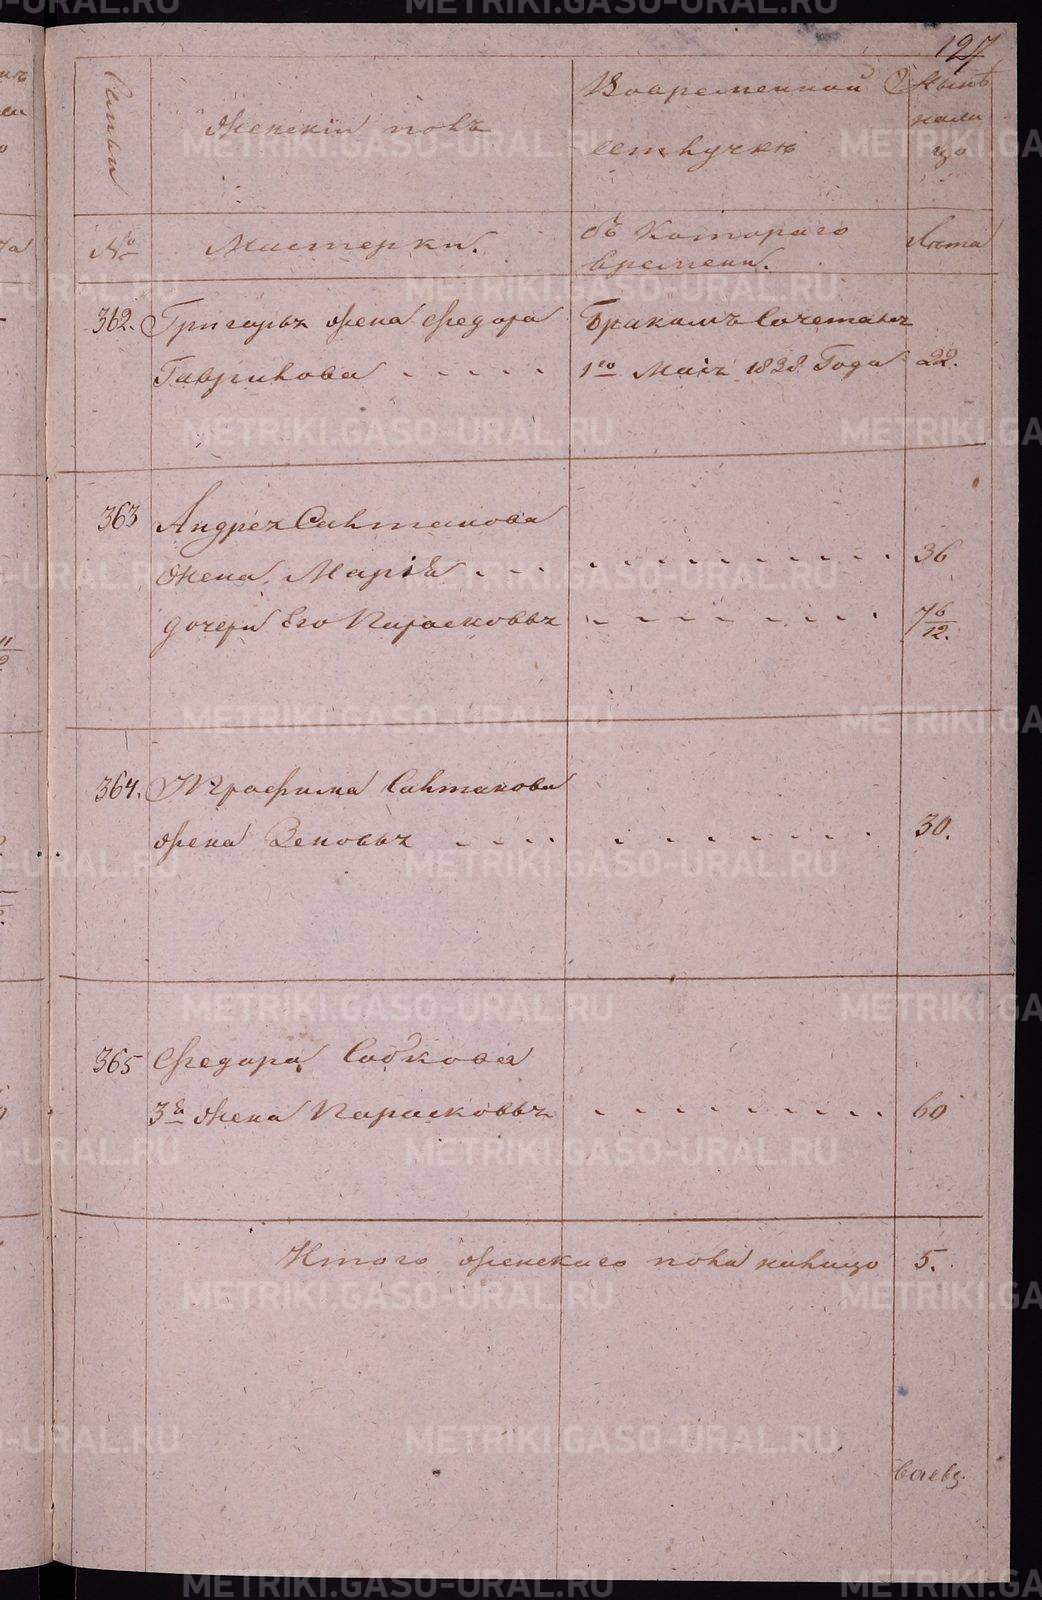 127
Фамильи
Женскiй полъ
Вовременной
Отлучке
Ныне
нали
цо
№
Мастерки.
Съ Котораго
времени.
Лѣта
362. Григорья жена Федора
Бракомъ Сочетанъ
Гаврилова
1го Маiя 1828. Года
22.
363 Андрея Салтанова
жена Марiя
36
дочери Его Парасковья
7 6/12.
364. Трофима Салтанова
жена Зеновья
30.
365 Федора Собкова
3я жена Парасковья
60
Итого женскаго пола налицо 5.
METRIKI.GASO-URAL.RU